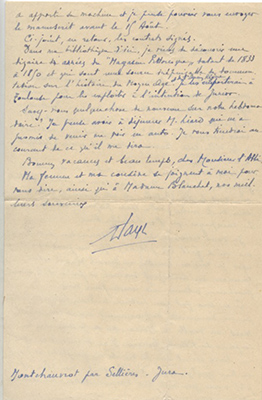 a apporté sa machine et je pense pouvoir vous envoyer
le manuscrit avant le 15 Août.
Ci-joint, en retour, les contrats signés.
Dans ma bibliothèque d'ici, je viens de découvrir une
dizaine de séries du "Magasin Pittoresque", datant de 1833
à 1850 et qui sont une source de documen-
tation sur l'histoire du Moyen
pour les exploits à l'intention de Junior
Savez-vous quelque chose de nouveau sur notre hebdoma-
daire? Je pense avoir à déjeuner M. qui m'a
promis de venir me voir en auto. Je vous tiendrai au
courant de ce qu'il me dira.
Bonnes vacances et beau temps,
Ma femme et ma se joignent à moi pour
vous dire, ainsi qu'à Madame Blanchet, nos meil-
leurs souvenirs
Montchauvrot par Sellières. Jura.